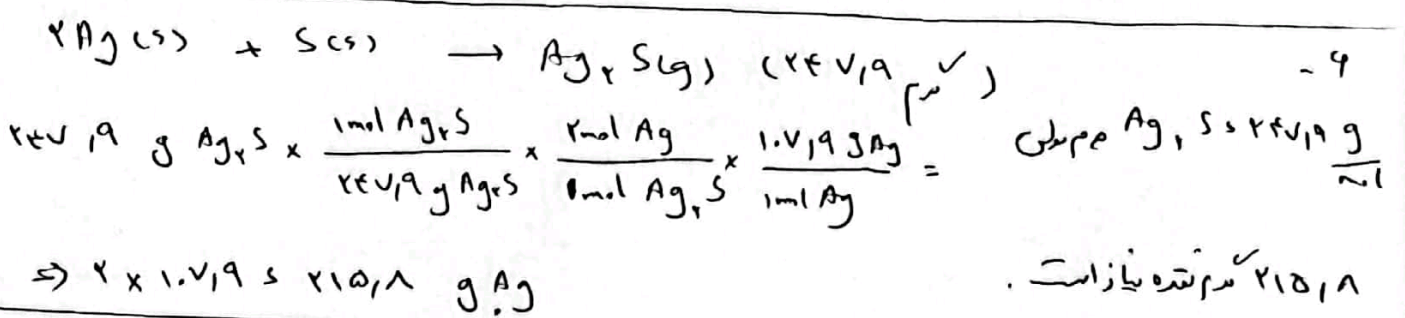 ۶-
۲Ag(s) + S(s) → Ag₂S(g) (۲۴۷,۹ گرم)
جرم مولی Ag₂S = ۲۴۷,۹ g/mol
۲۴۷,۹ g Ag₂S × ۱mol Ag₂S/۲۴۷,۹ g Ag₂S × ۲mol Ag/۱mol Ag₂S × ۱۰۷,۹ g Ag/۱mol Ag =
⇒ ۲ × ۱۰۷,۹ = ۲۱۵,۸ g Ag
۲۱۵,۸ گرم نقره نیاز است.